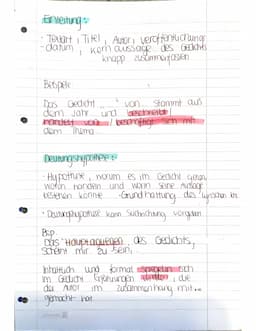 Einleitung:
- Textart, Titel, Autor, Veröffentlichungs-
datum, Kernaussage des Gedichts
knapp zusammenfassen
Beispiele
Das Gedicht "..." von stammt aus
dem Jahr und beschreibt/
handelt von/ beschäftigt sich mit
dem Thema
Deutungshypothese:
- Hypothese, worum es im Gedicht
und worin seine Aussage
bestehen könnte. Grundhaltung des lyrischen Ich
- Deutungshypothese kann
Bsp.
Das Hauptanliegen des Gedichts,
scheint mir zu sein,
Inhaltlich und formal spiegeln sich
im Gedicht Erfahrungen, die
die Autor im Zusammenhang mit...
gemacht hat